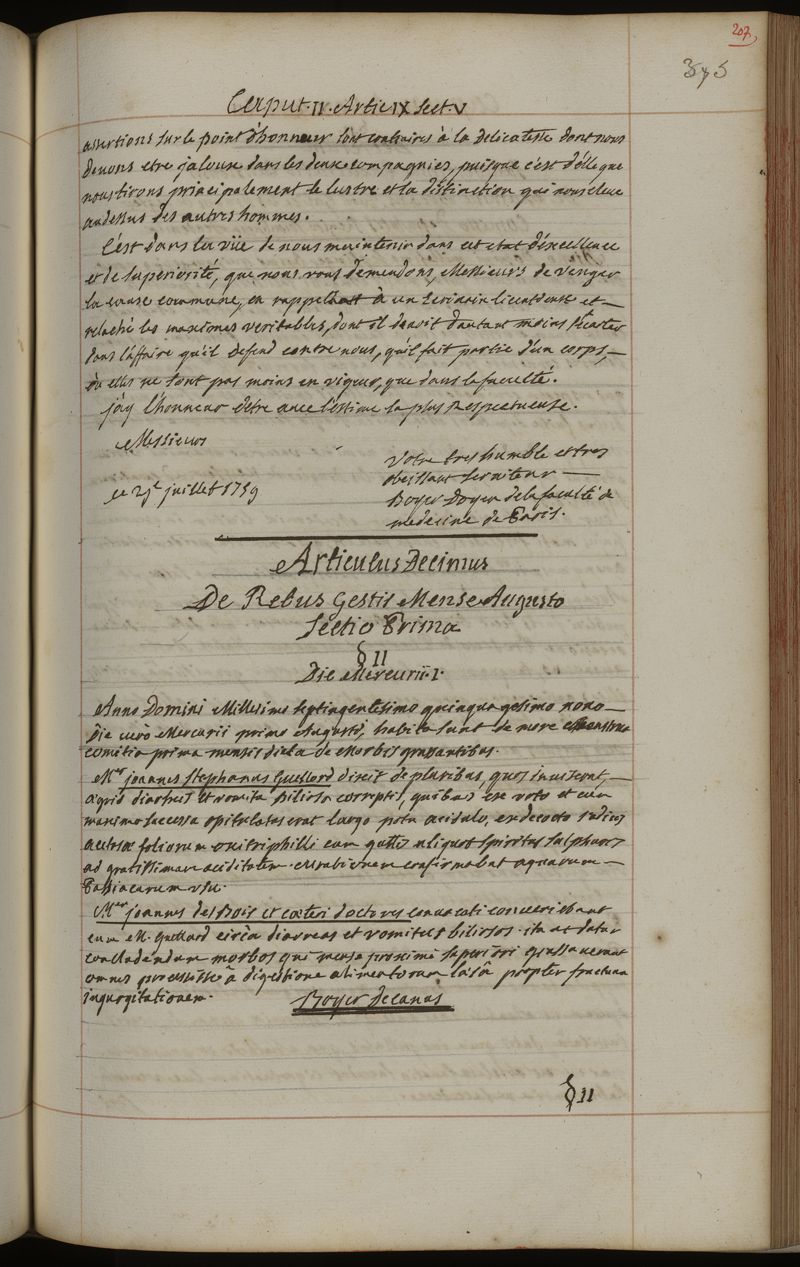 207
375
Caput. II. Artic IX Sect. V
assertions sur le point d'honneur sont contraires à la delicatesse dont nous
devons etre jaloux dans les deux compagnies, puisque c'est d'elle que
nous tirons principalement le lustre et la distinction qui nous eleve
au dessus des autres hommes.
C'est dans la vüe de nous maintenir dans cet etat d'excellence
et de superiorité, que nous vous demendons, Messieurs de venger
la cause commune, en rappellant à un Ecrivain licentieux et
relaché les maximes veritables, dont il devoit d'autant moins s'écarter
dans l'affaire qu'il defend contre nous, qu'il fait partie d'un corps,
où elles ne sont pas moins en vigeur, que dans la faculté.
j'ay l'honneur d'etre avec l'estime la plus Respectueuse.
Messieurs
Votre tres humble et tres
obeissant serviteur
ce juillet 1759
Boyer Doyen de la faculté de
medecine de Paris.
Articulus Decimus
De Rebus Gestis Mense Augusto
Sectio Prima
§ II
Die Mercurii. 1.
Anno Domini Millesimo septingentesimo quinquagesimo nono
Die vero Mercurii primo Augusti, habita sunt de more
comitia prima mensis dicta de Morbis grassantibus.
Mer joannes Stephanus Guettard dixit de pluribus, quos inviserat,
ægris diarheis et vomitu bilioso correpti, quibus ex voto et cum
maximo successu opitulatus erat largo potu acidulo, ex decocto radicis
acetosæ foliorum oxitriphilli cum guttis aliquot spiritus sulphuris
ad gratissimam aciditatem. curationem confirmabat aquarum
Passiacarum usu.
Mer joannes des Bois et cœteri doctores convocati consenserunt
cum M. Guettard circa diarreas et vomitus biliosos. ita ac datur
concludendum morbos qui mense proximè superiori grassaverunt
omnes processisse à digestione alimentorum læsâ propter fructuum
ingurgitationem.
Boyer decanus
§ II